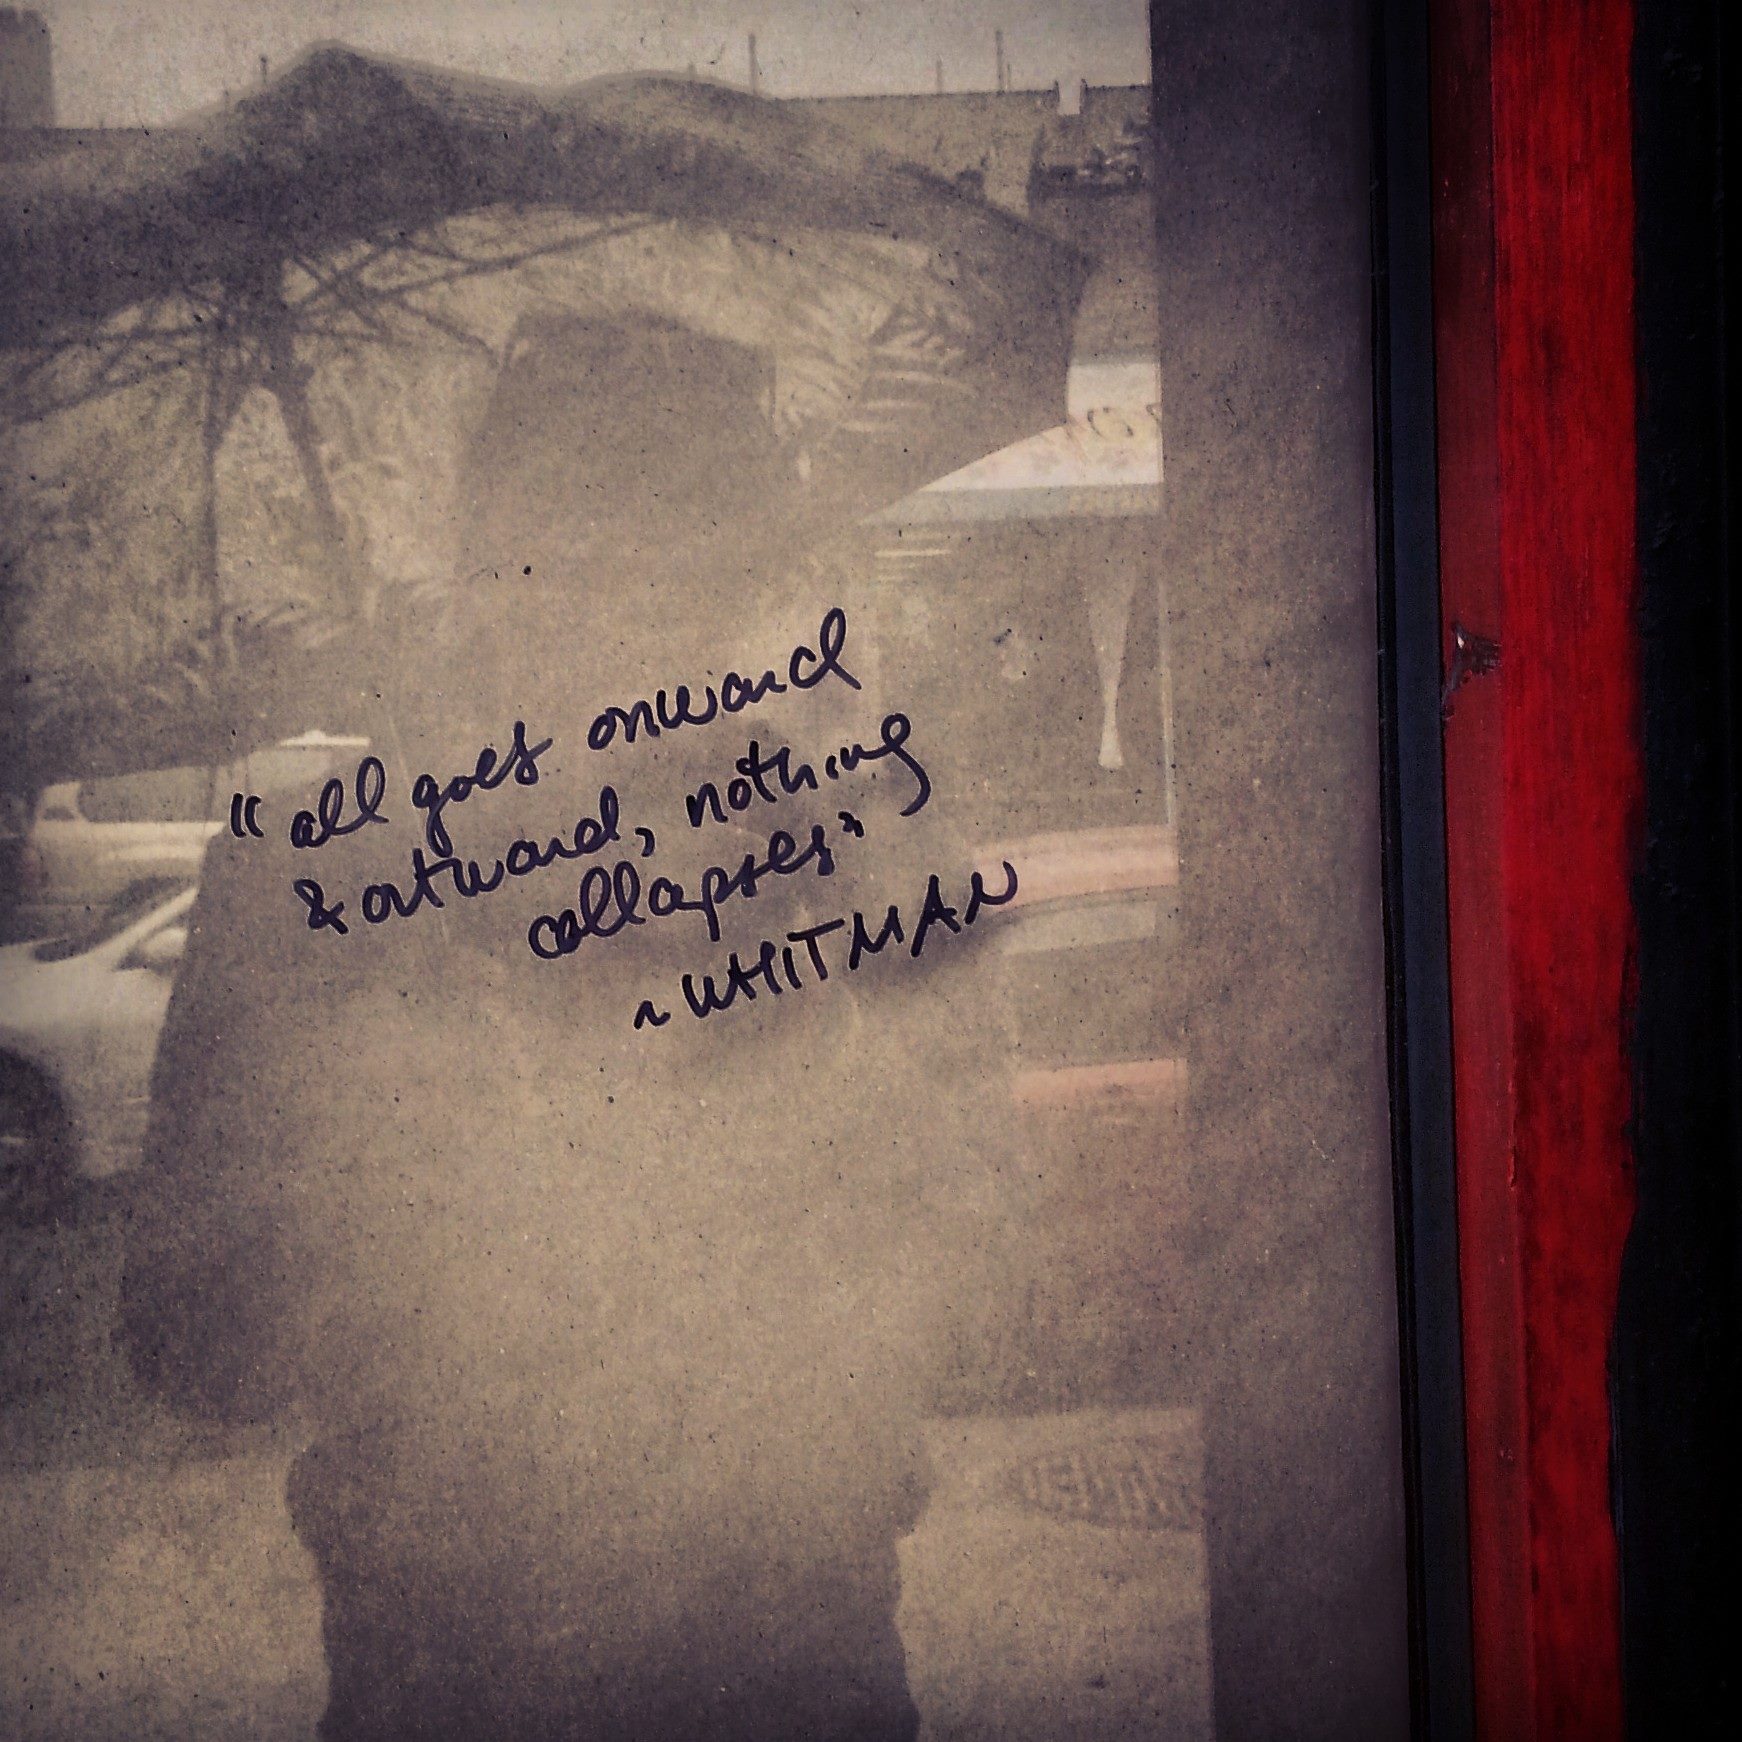 "all goes onward
& outward, nothing
collapses"
~WHITMAN